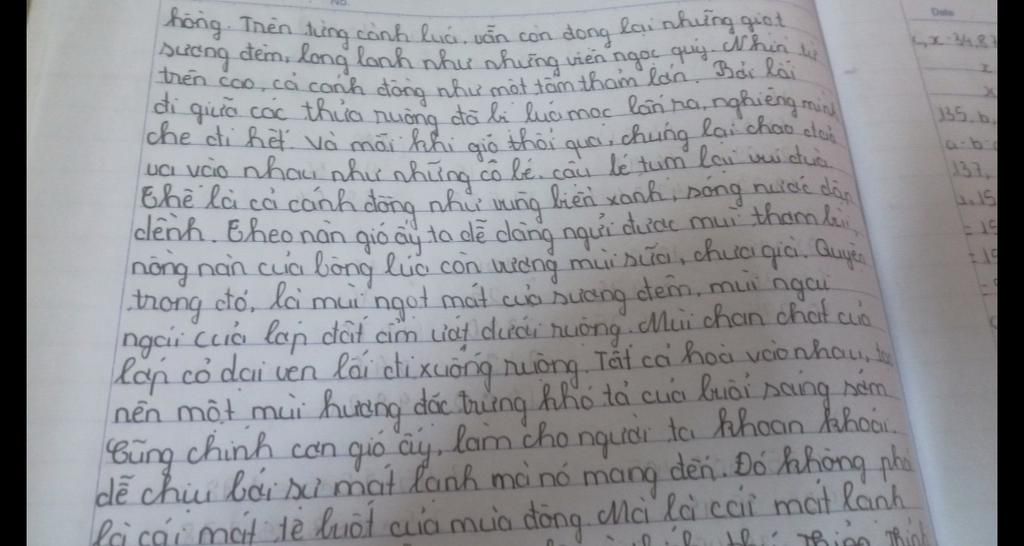 hồng. Trên từng cành lúa, vẫn còn đọng lại những giọt
sương đêm, long lanh như những viên ngọc quý. Nhìn từ
trên cao, cả cánh đồng như một tấm thảm lớn. Bởi lối
đi giữa các thửa ruộng đã bị lúa mọc lấn ra, nghiêng mình
che đi hết. Và mỗi khi gió thổi qua, chúng lại chao đảo
va vào nhau như những cô bé, cậu bé túm lại vui đùa.
Thế là cả cánh đồng như vùng biển xanh, sóng nước dập
dềnh. Theo làn gió ấy ta dễ dàng ngửi được mùi thơm
nồng nàn của bông lúa còn vương mùi sữa, chưa già. Quyện
trong đó, là mùi ngọt mát của sương đêm, mùi ngai
ngái của lớp đất ẩm ướt dưới ruộng. Mùi chan chát của
lớp cỏ dại ven lối đi xuống ruộng. Tất cả hoà vào nhau, tạo
nên một mùi hương đặc trưng khó tả của buổi sáng sớm
Cũng chính cơn gió ấy, làm cho người ta khoan khoái
dễ chịu bởi sự mát lành mà nó mang đến. Đó không phả
là cái mát tê buốt của mùa đông. Mà là cái mát lành
Date
x
x
135. b.
a. b
137.